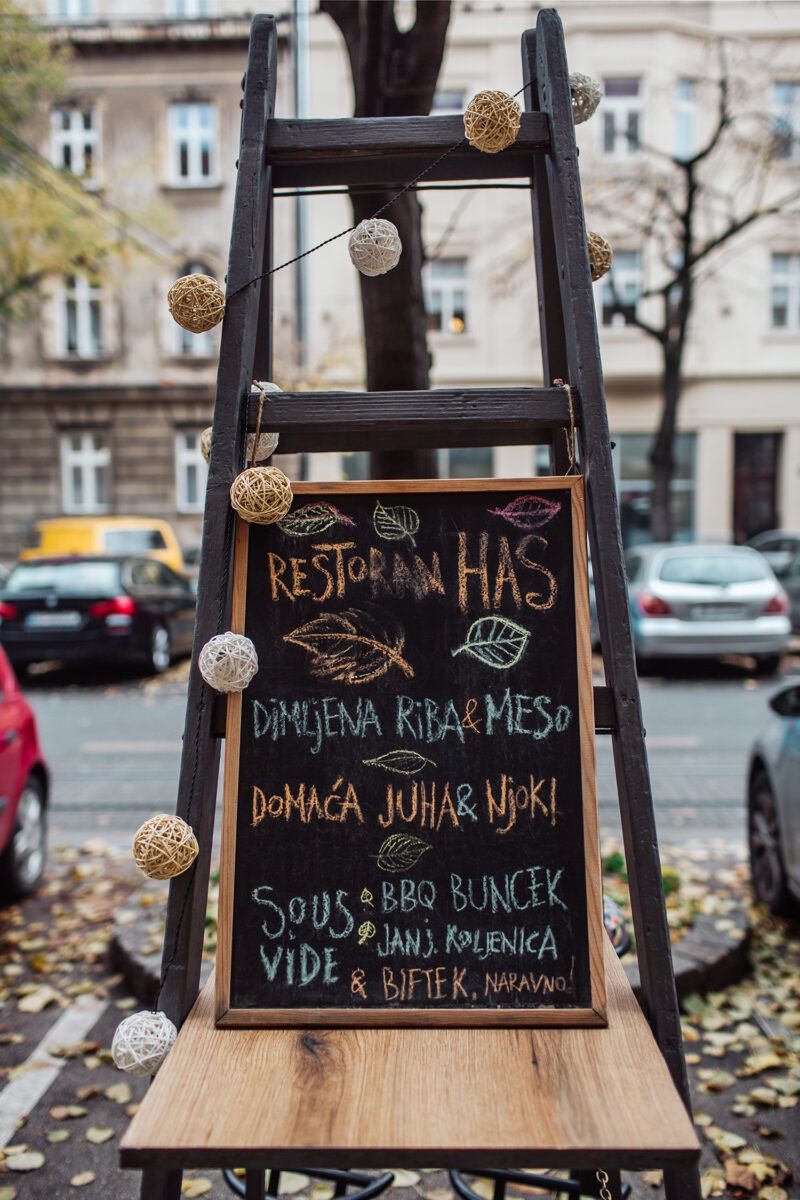 RESTORAN HAS
DIMLJENA RIBA & MESO
DOMAĆA JUHA & NJOKI
SOUS VIDE
BBQ BUNCEK
JANJ. KOLJENICA
& BIFTEK, NARAVNO!